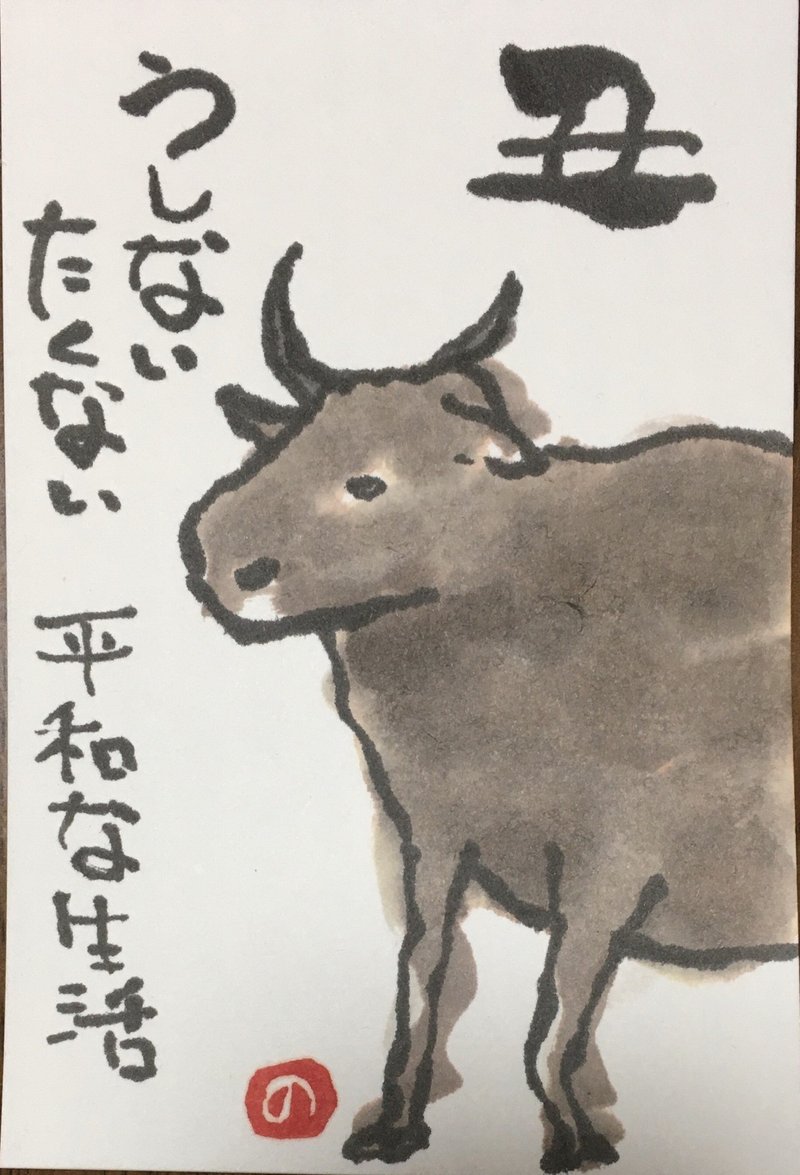 丑
うしない
たくない 平和な生活
の